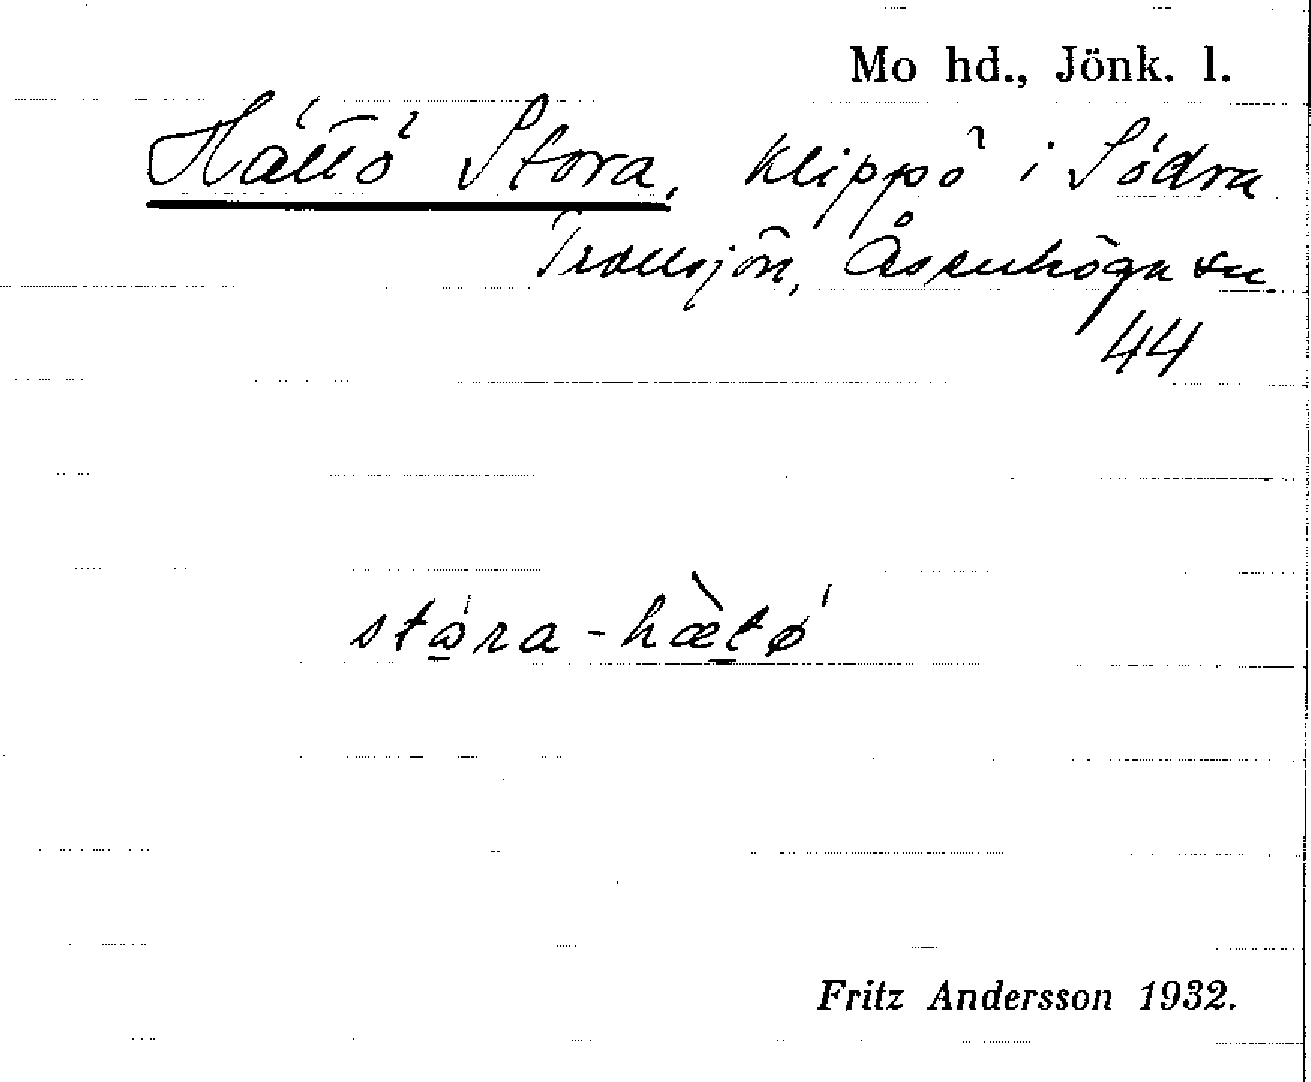 Mo hd., Jönk. l.
Hättö Stora, klippö i Södra
Trollsjön, Åsenhöga sn.
44
stɷ́ra-hæ̀tø
Fritz Andersson 1932.